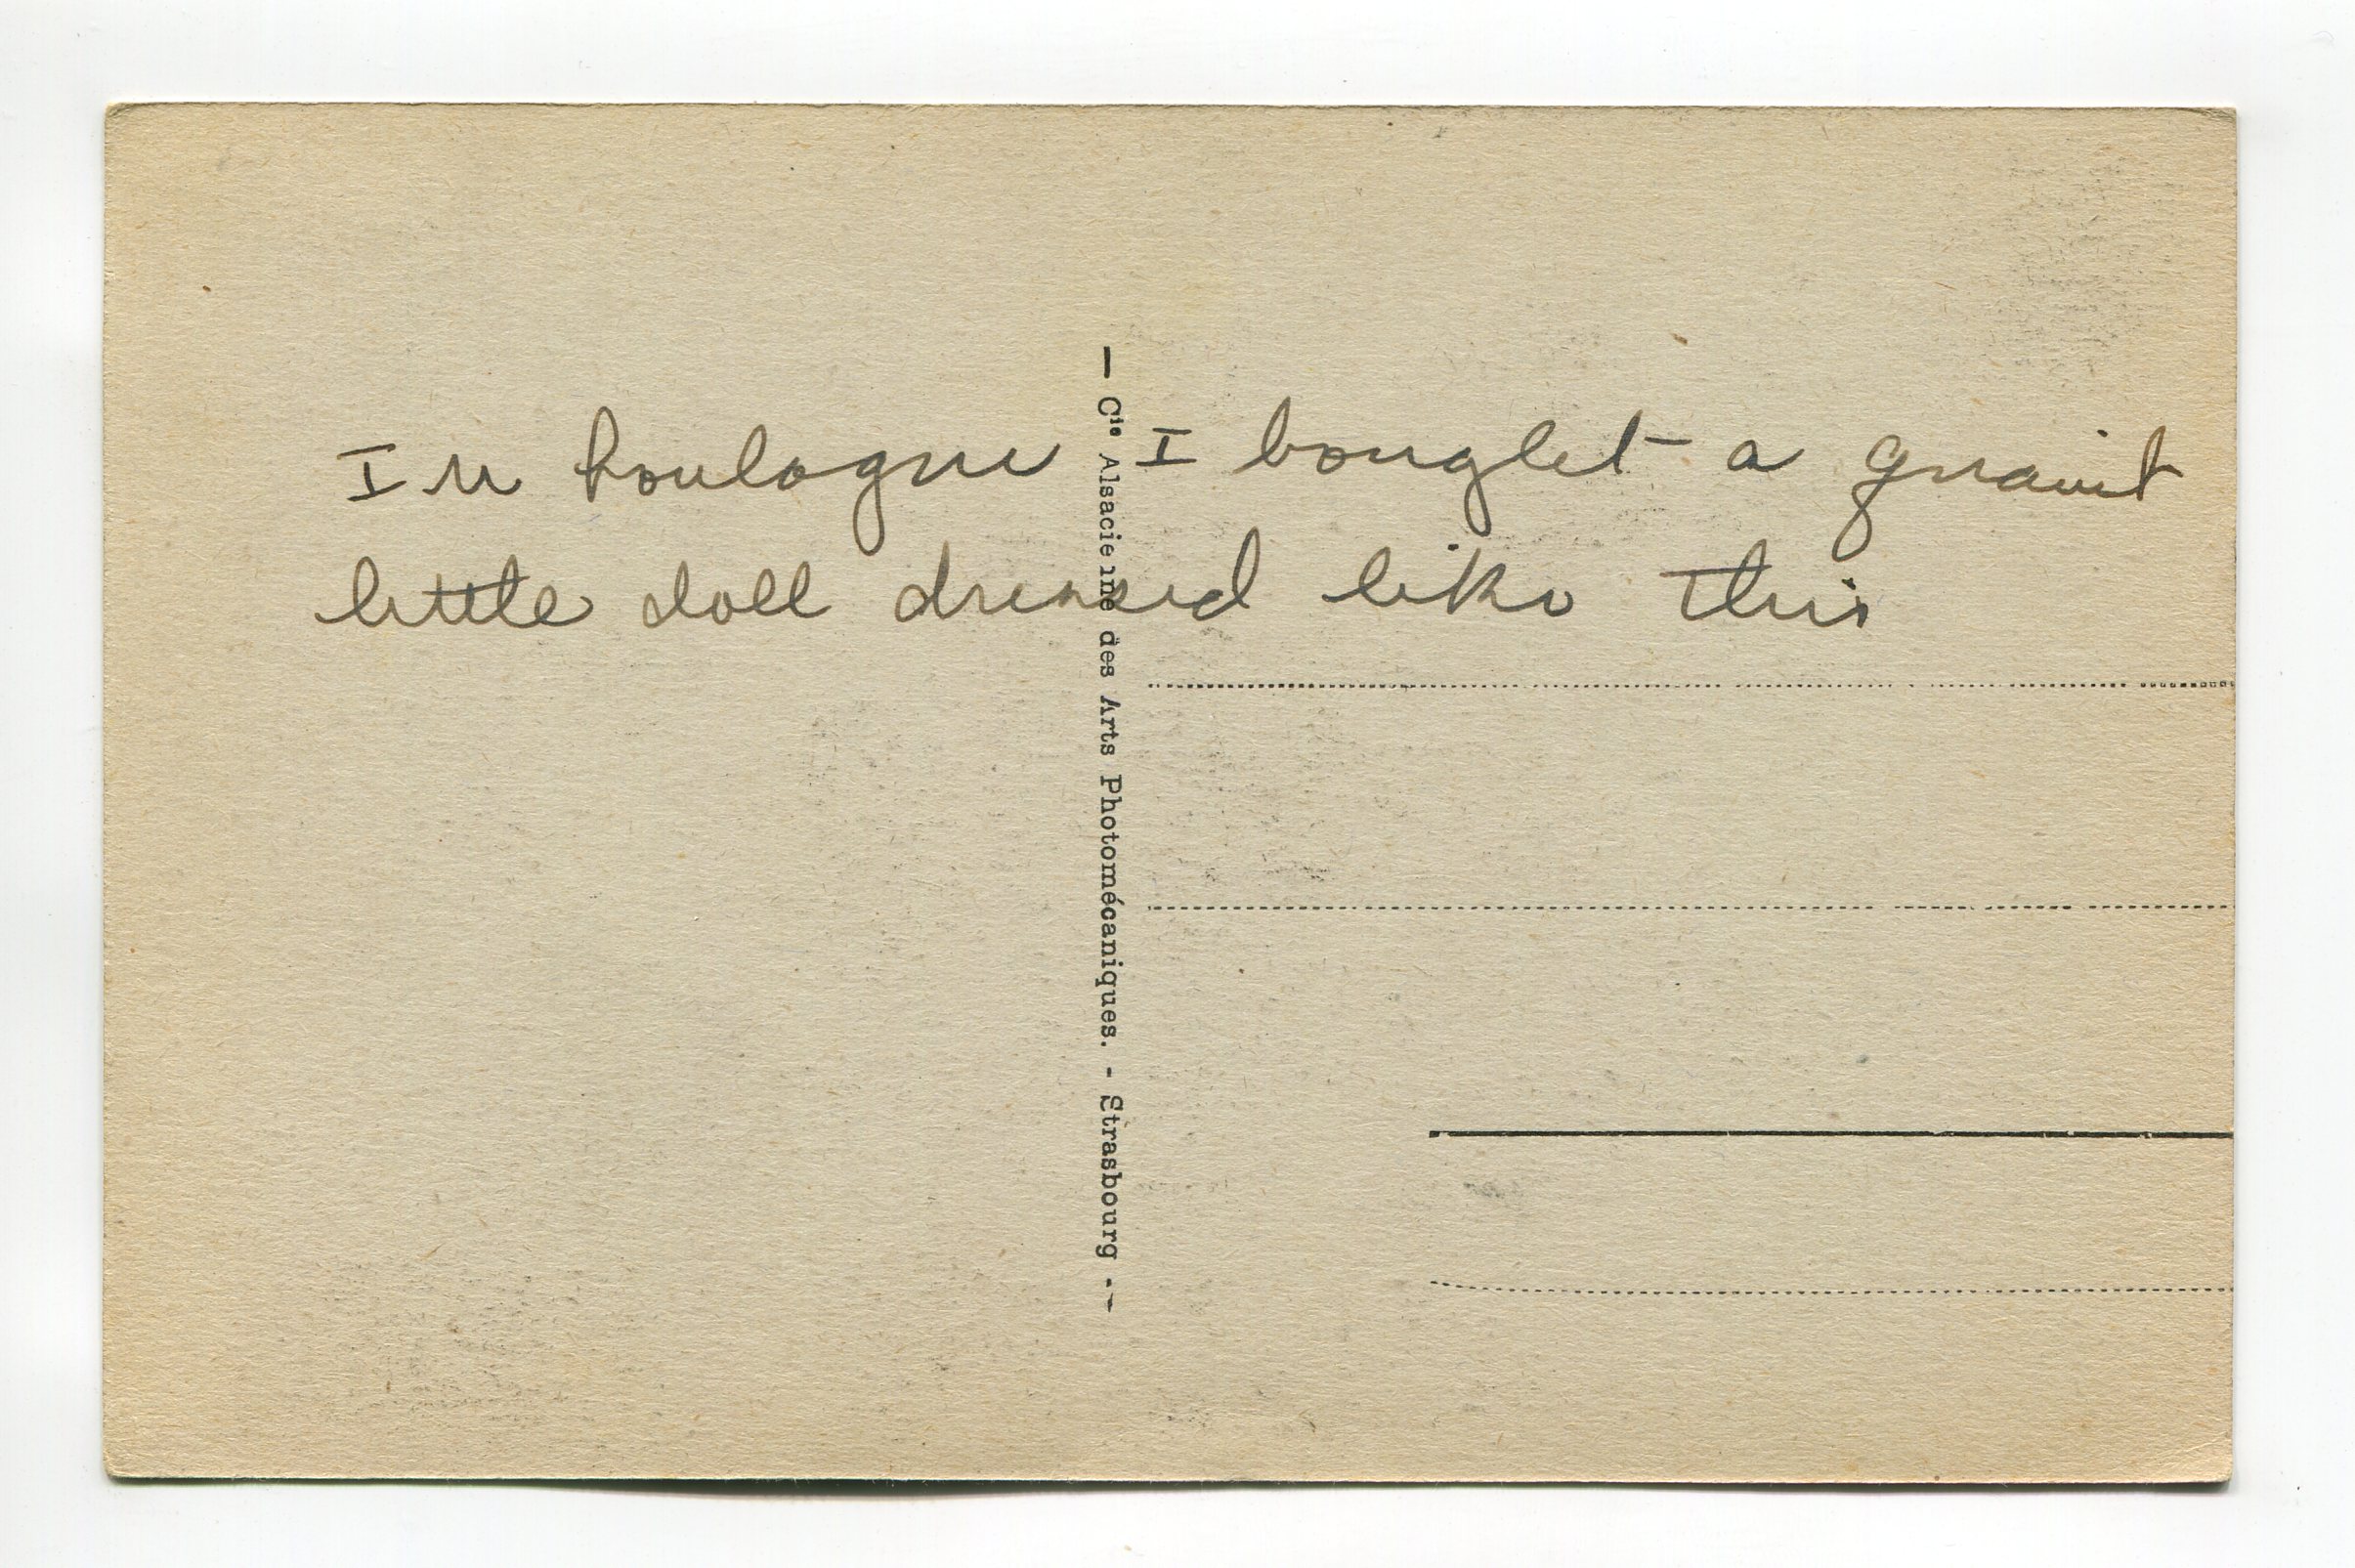 In Boulogne I bought a quaint
little doll dressed like this
— Cie Alsacienne des Arts Photomécaniques. - Strasbourg --